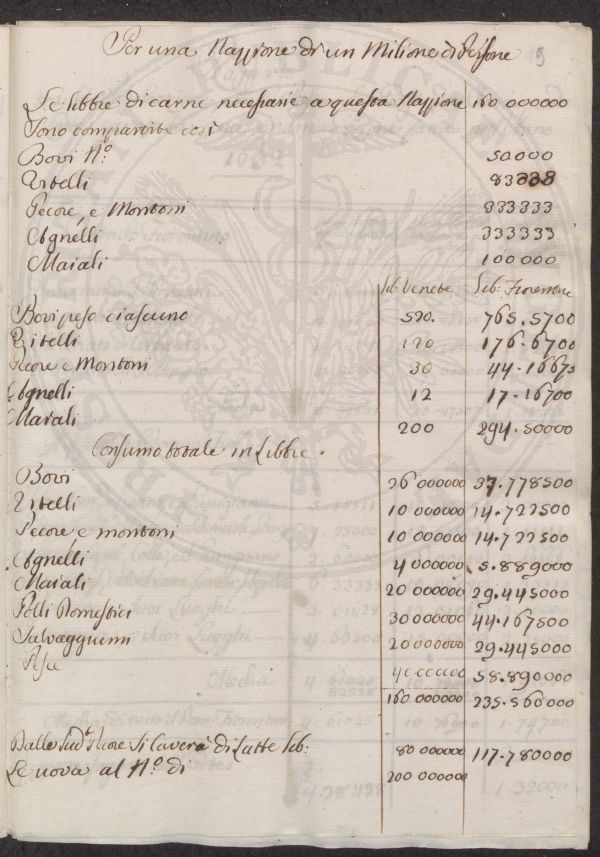 Per una Nazzione di un Milione di Persone 9
Le libbre di carne necessarie a questa Nazzione 160 000000
Sono compartite così
Bovi N.º 50.000
Vitelli 83333
Pecore, e Montoni 333333
Agnelli 333333
Maiali 100 000
Lib: Venete Lib: Fiorentine
Bovi peso ciascuno 520. 765.5700
Vitelli 120 176.6700
Pecore e Montoni 30 44.16675
Agnelli 12 17.16700
Maiali 200 294.50000
Consumo totale in Libbre.
Bovi 26 000000 37.778500
Vitelli 10 000000 14.722500
Pecore e montoni 10 000000 14.722500
Agnelli 4 000000 5.889000
Maiali 20 000000 29.445000
Polli Domestici 30 000000 44.167500
Salvaggiumi 20 000000 29.445000
Pesce 40 000000 58.890000
160 000000 235.560000
Dalle Sud.e Pecore si caverà di Latte Lib: 80 000000 117.780000
Le uova al N.º di 200 000000